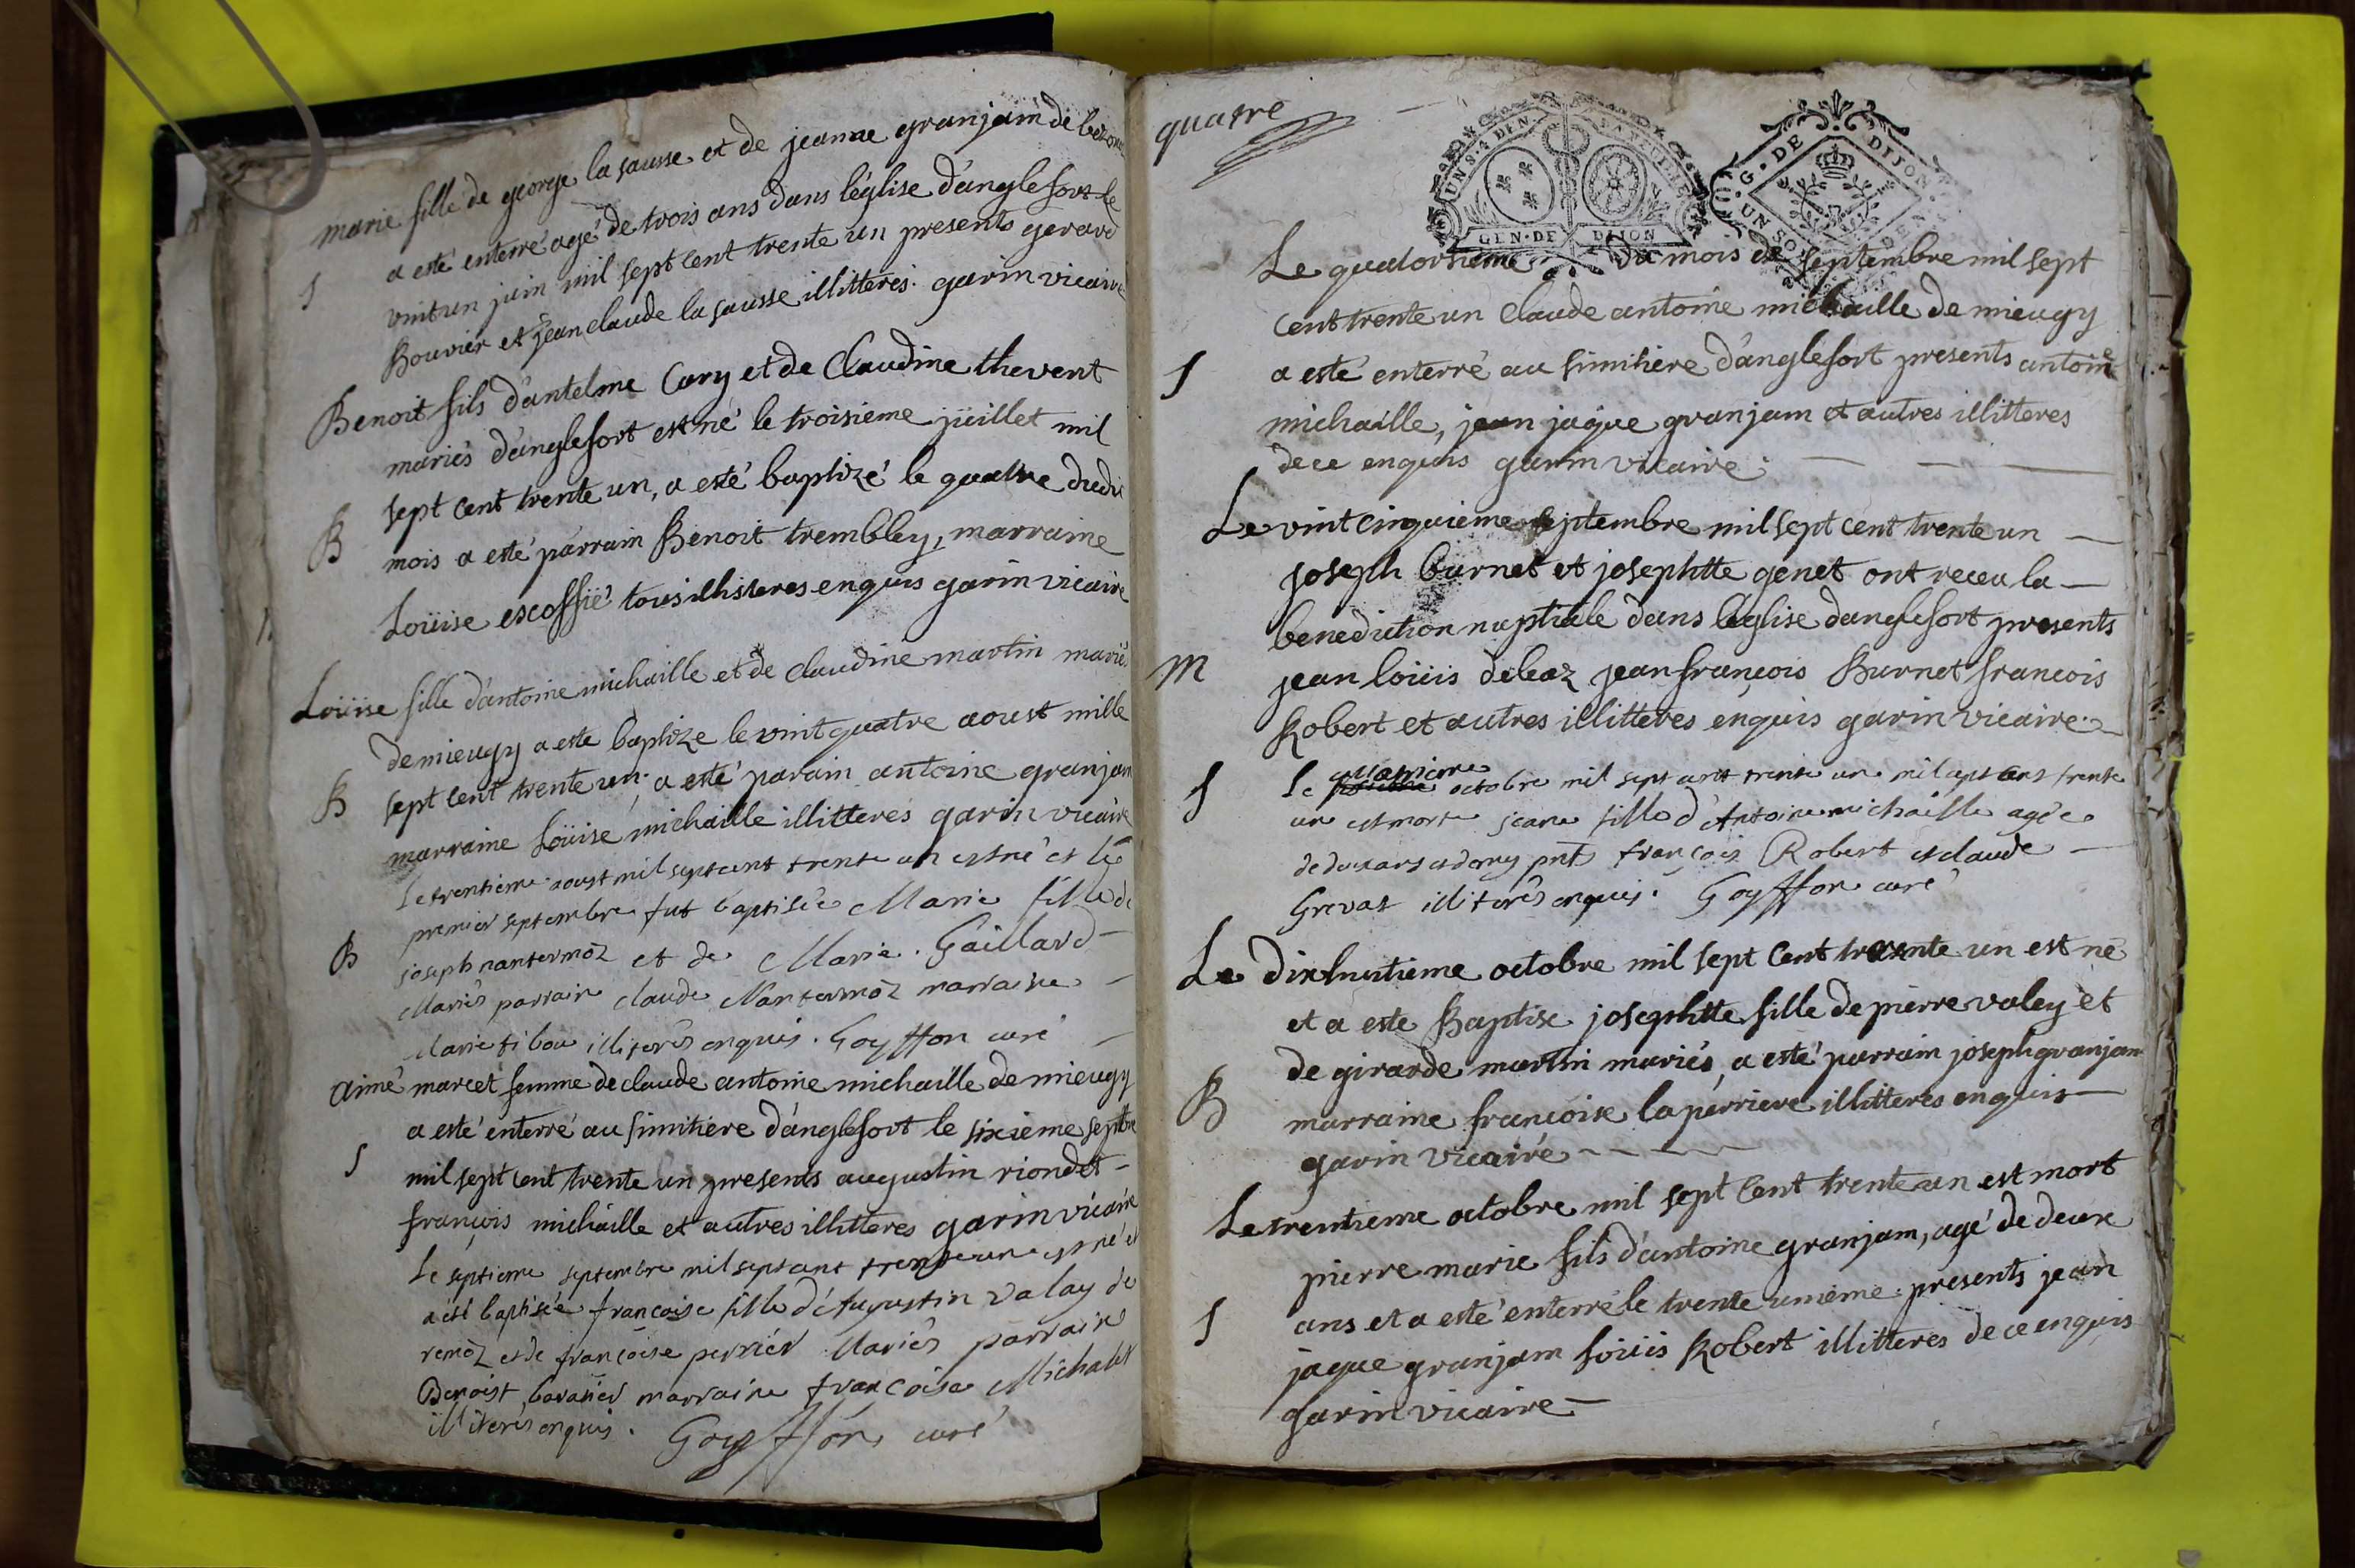 marie fille de george la sausse et de jeanne granjam de
S
a esté enterré agé de trois ans dans l'église d'anglefort le
vint un juin mil sept cent trente un presents gerard
Bouvier et jean claude la sausse illitteres. garin vicaire
Benoit fils d'antelme Cary et de Claudine thevent
mariés d'anglefort est né le troisieme juillet mil
sept cent trente un, a esté baptizé le quattre dudit
B
mois a esté parrain Benoit trembley, marraine
Loüise escoffié tous illitteres enquis garin vicaire
Loüise fille d'antoine michaille et de claudine martin mariés
de mieugy a esté baptize le vint quatre aoust mille
B
sept cent trente un. a esté parain antoine granjam
marraine Loüise michaille illitteres garin vicaire
Le trentieme aoust mil sept cent trente un est né et le
premier septembre fut baptisée Marie fille de
B
joseph nantermoz et de Marie Gaillard
Mariés parrain claude Nantermoz marraine
Marie tibou illiterés enquis. Goyffon curé
aimé marcet femme de claude antoine michaille de mieugy
a esté enterré au simitiere d'anglefort le sixieme septbre
S
mil sept cent trente un presents augustin riondet
françois michaille et autres illitteres garin vicaire
Le septieme septembre mil sept cent trente un est né et
a été baptisée francoise fille d'Augustin valay de
remoz et de françoise perrier Mariés parrain
Benoist bavasier marraine francoise Michalet
illiterés enquis. Goyffon curé
quatre
UN S. 4 DEN. LA FEUILLE
GEN. DE DIJON
G. DE DIJON
UN SOL
Le quatorzieme du mois de septembre mil sept
cent trente un Claude antoine michaille de mieugy
S
a esté enterré au simitiere d'anglefort presents antoine
michaille, jean jaque granjam et autres illitteres
de ce enquis garin vicaire.
Le vint cinquieme septembre mil sept cent trente un
joseph burnet et josephtte genet ont receu la
benediction nuptiale dans l'eglise danglefort presents
M
jean loüis deleaz jean françois Burnet francois
Robert et autres illitteres enquis garin vicaire.
quatrieme
S
Le octobre mil sept cent trente un mil sept cent trente
un est morte jeane fille d'Antoine michaille agée
de deux ans et demy pnts françois Robert et claude
Grevat illiterés enquis. Goyffon curé
Le dixhuitieme octobre mil sept cent trente un est né
et a esté Baptise josephtte fille de pierre valey et
de girarde martin mariés, a esté parrain joseph granjam
B
marraine françoise la perriere illitteres enquis
garin vicaire
Le trentieme octobre mil sept cent trente un est mort
pierre marie fils d'antoine granjam, agé de deux
S
ans et a esté enterré le trente unieme. presents jean
jaque granjam loüis Robert illitteres de ce enquis
garin vicaire